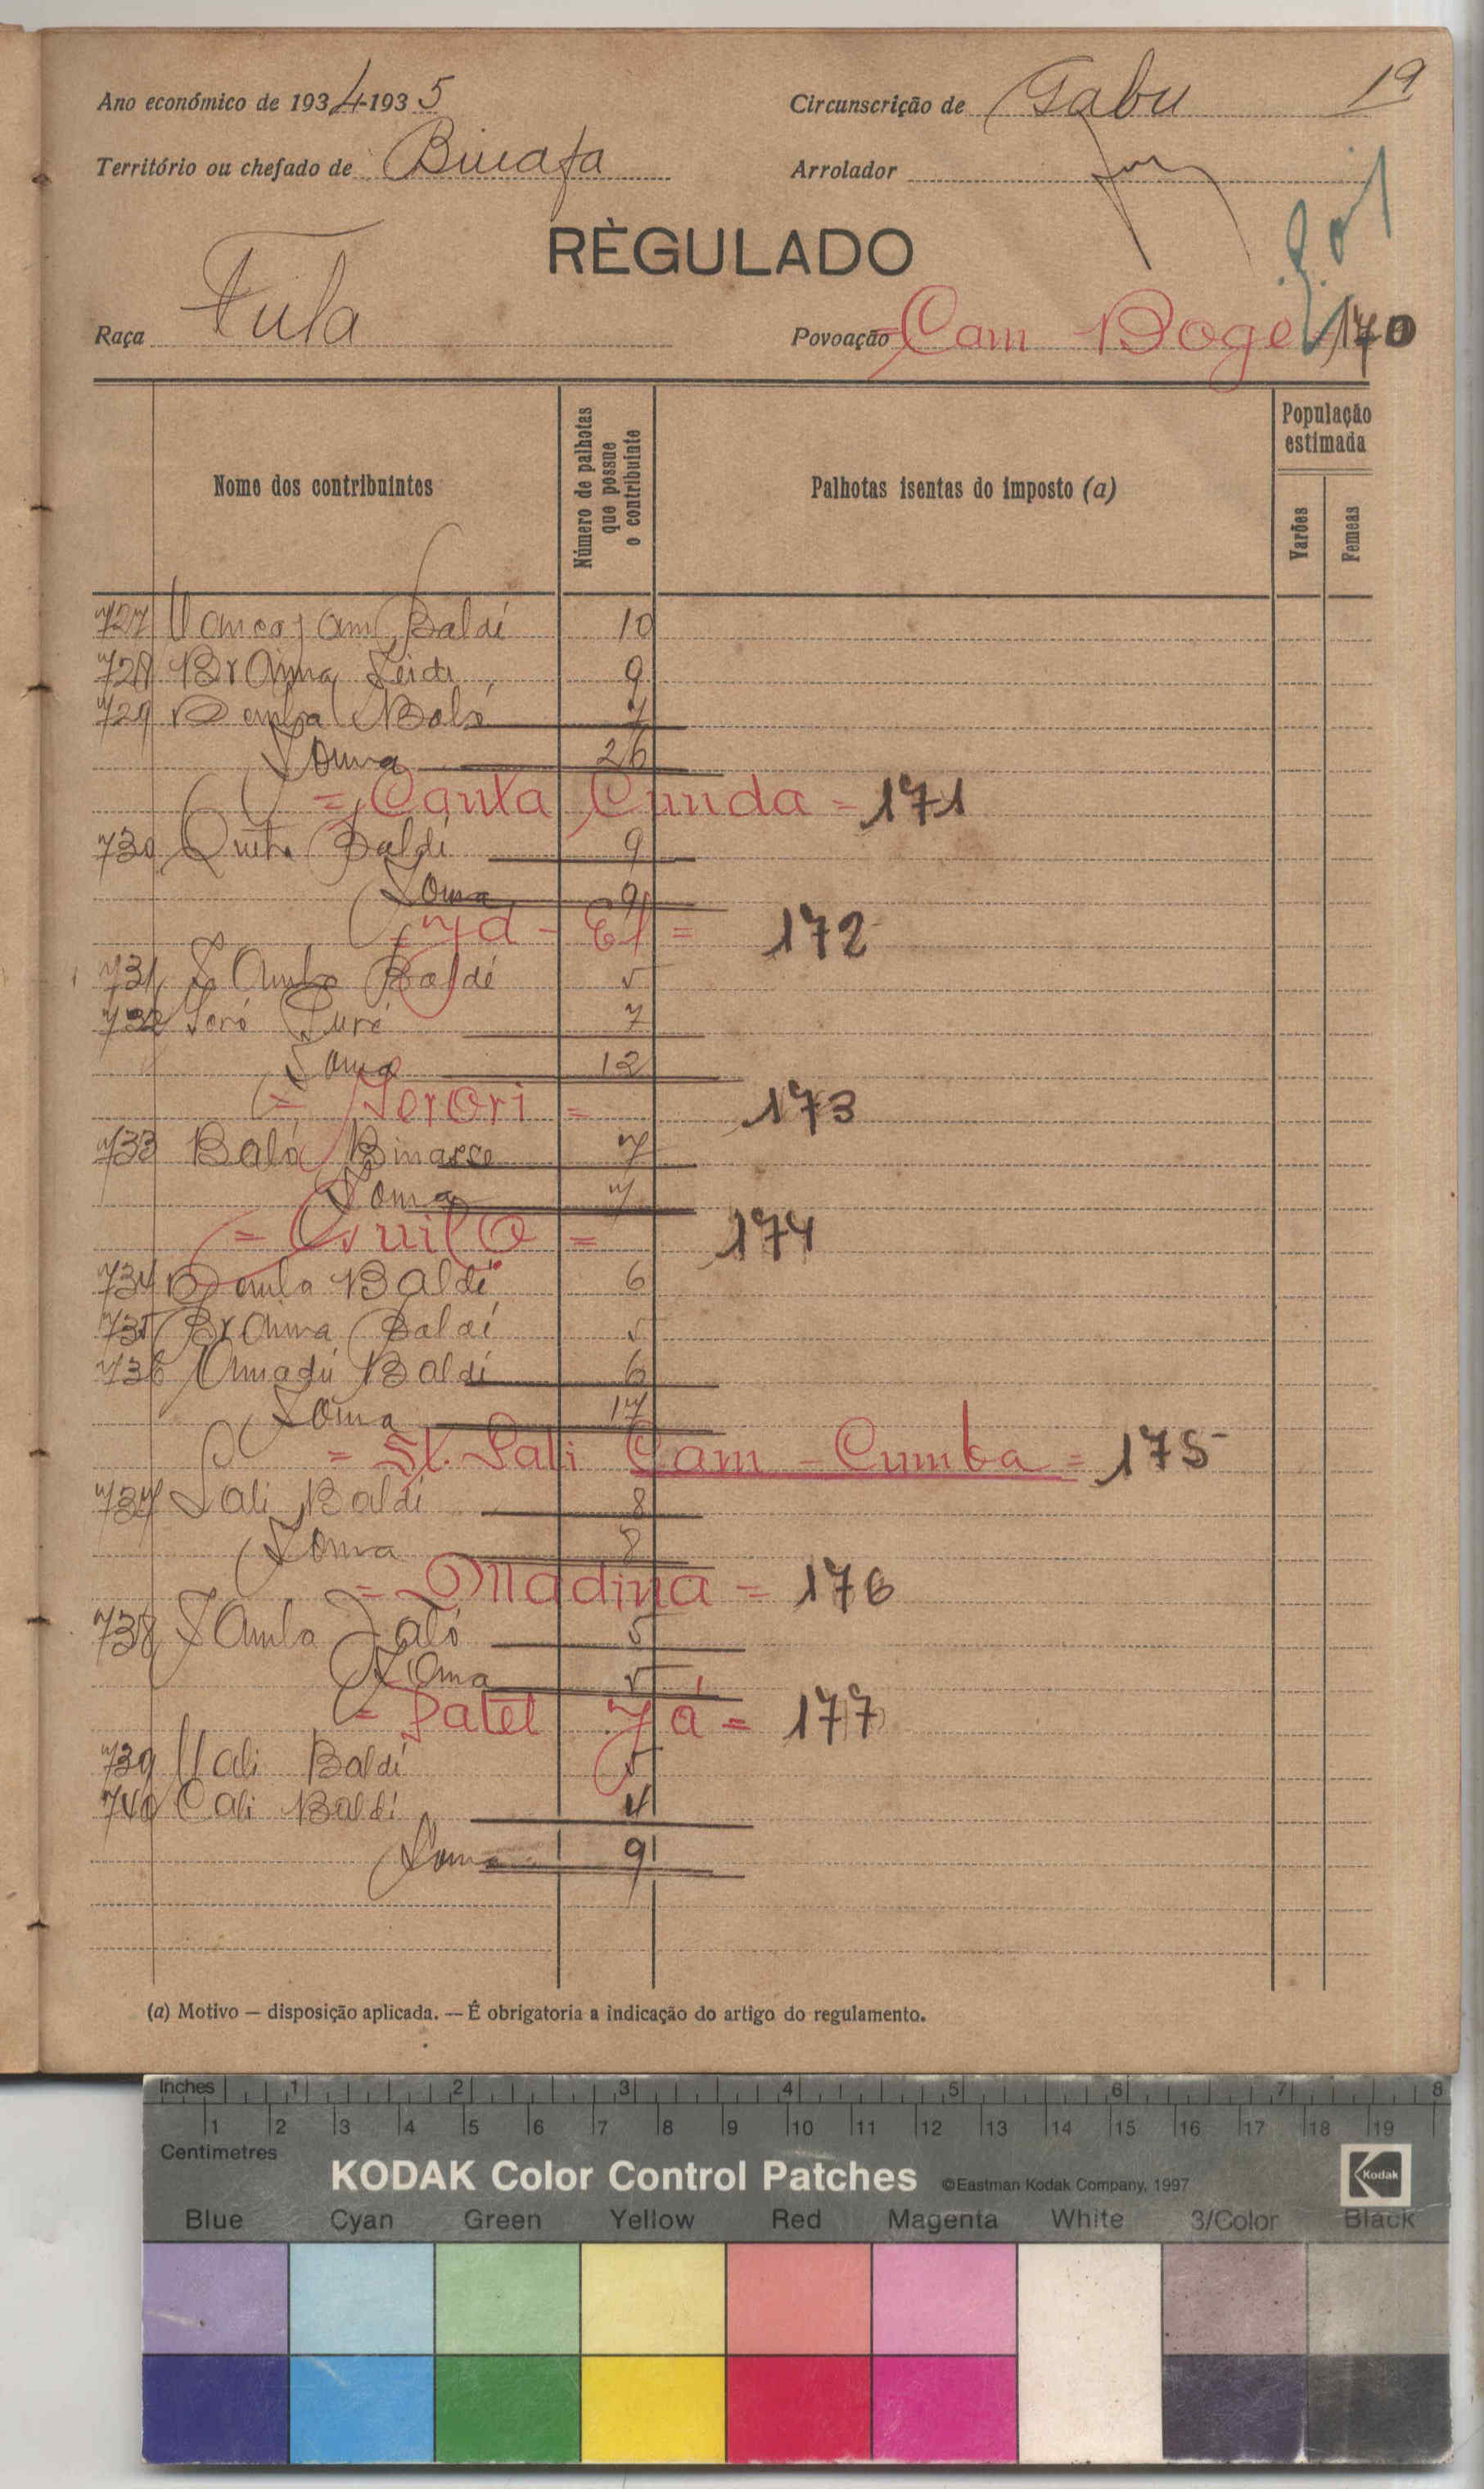 19
Ano económico de 1934-1935 Circunscrição de Gabu
Território ou chefado de Binafa Arrolador
RÈGULADO
Raça Fula Povoação = Cam Boge 170
Nome dos contribuintes
Número de palhotas que possue o contribuinte
Palhotas isentas do imposto (a)
População estimada
Varões
Femeas
727 Baldé 10
728 Braima Seidi 9
729 Demba Baló 7
Soma 26
= Canta Cunda = 171
730 Baldé 9
Soma 9
= Yá - El = 172
731 Samba Baldé 5
732 Seró Turé 7
Soma 12
= Serori = 173
733 Baló Binasse 7
Soma 7
= Quilo = 174
734 Demba Baldé 6
735 Braima Baldé 5
736 Amadú Baldé 6
Soma 17
= St. Sali Cam - Cumba = 175
737 Sali Baldé 8
Soma 8
= Madina = 176
738 Samba Jaló 5
Soma 5
= Patel Yá = 177
739 Uali Baldé 5
740 Cali Baldé 4
Soma 9
(a) Motivo — disposição aplicada. — É obrigatoria a indicação do artigo do regulamento.
Inches 1 2 3 4 5 6 7 8
1 2 3 4 5 6 7 8 9 10 11 12 13 14 15 16 17 18 19
Centimetres
KODAK Color Control Patches ©Eastman Kodak Company, 1997 Kodak
Blue Cyan Green Yellow Red Magenta White 3/Color Black